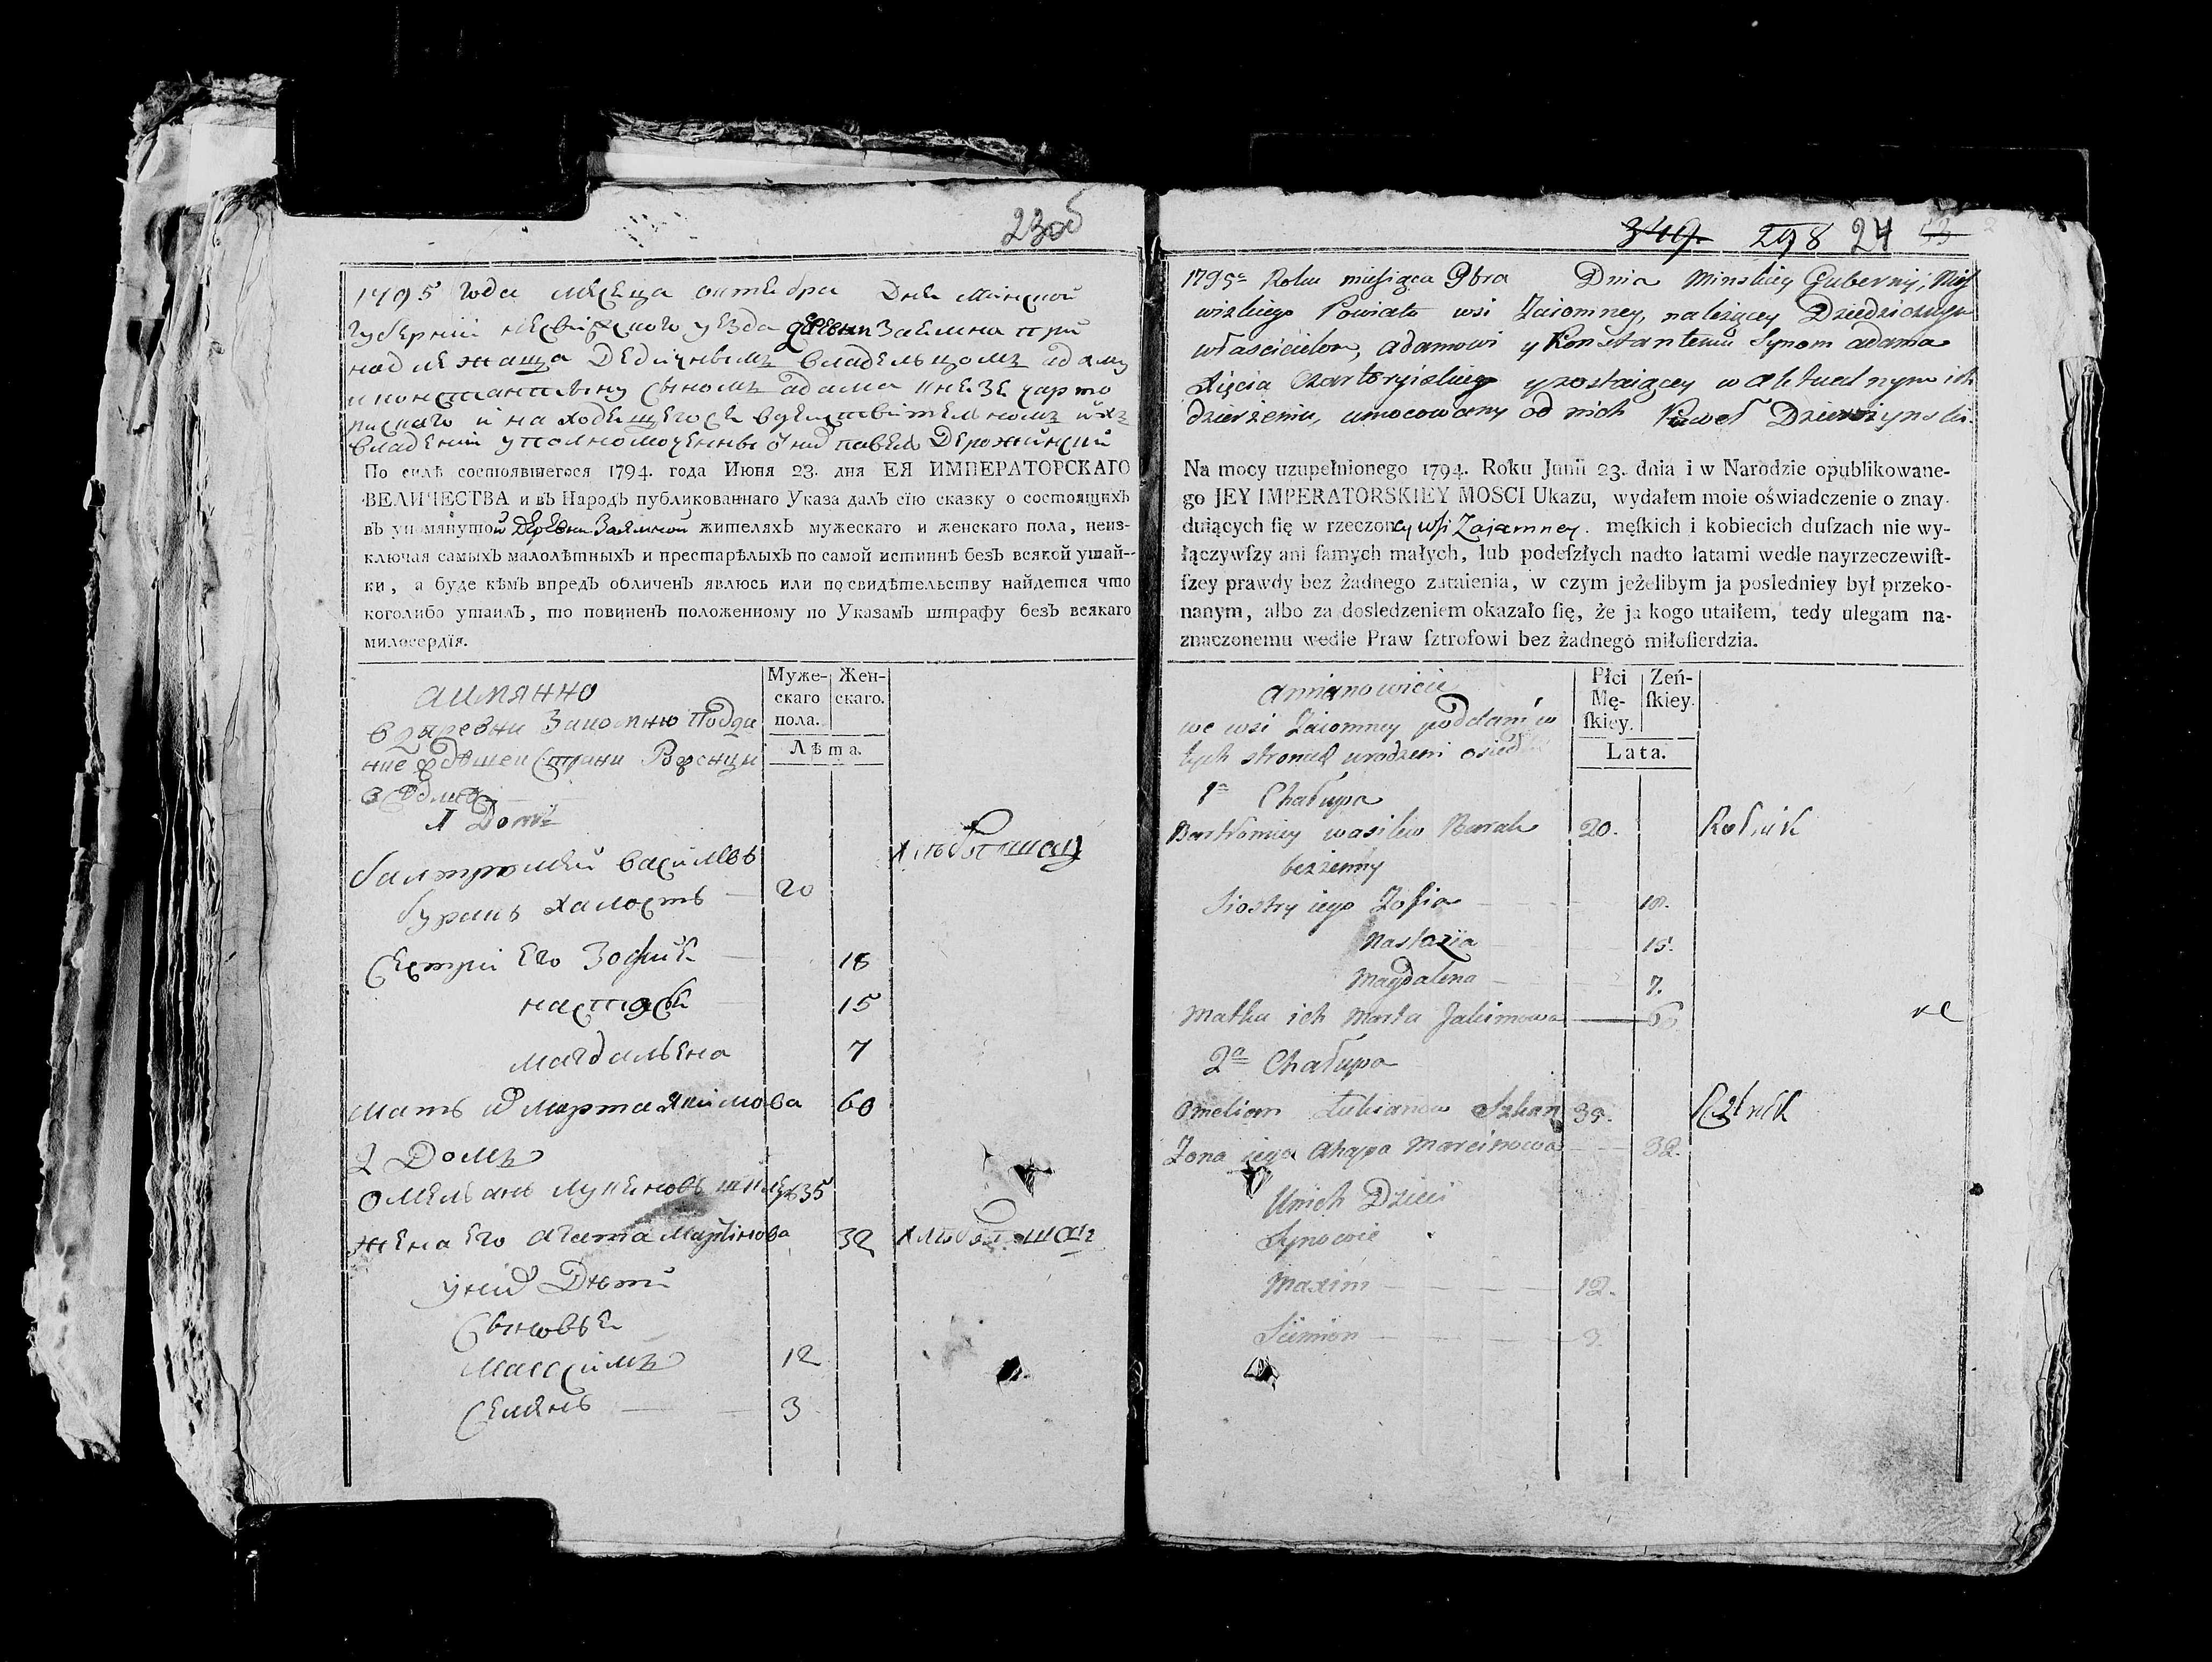 230б
1795 года месеца октебра Дня Минской
губернии несвижского уезда деревни Заемна при
надлежаща Дедичнымъ владельцомъ адаму
и константыну сыномъ адама кнезе чарто
риского и на ходещегосе вдействительномъ ихъ
владении уполномоченны о них павел Держинский
По силѣ состоявшегося 1794. года Июня 23. дня ЕЯ ИМПЕРАТОРСКАГО
ВЕЛИЧЕСТВА и въ Народъ публикованнаго Указа далъ сїю сказку о состоящихъ
въ упомянутой Деревни Заямной жителяхъ мужескаго и женскаго пола, неиз-
ключая самыхъ малолѣтныхъ и престарѣлыхъ по самой истиннѣ безъ всякой утай-
ки, а буде кѣмъ впредъ обличенъ явлюсь или по свидѣтельству найдется что
коголибо утаилъ, то повиненъ положенному по Указамъ штрафу безъ всякаго
милосердїя.
Муже- скаго пола.
Жен- скаго.
Лѣта.
аимянно
в деревни Заюмню Подда
ние
1 Домъ
балтромей васильвъ
буракъ халостъ 20 хлебопашец
Сестри его Зофие 18
настасе 15
магдалена 7
мать их марта Якимова 60
2 Домъ
омельянъ лукяновъ 35
жена его агата мартинова 32 хлебопашец
у них Дети
Сыновье
максимъ 12
Семянъ 3
349. 298 24 53
1795o Roku miesiąca 9bra Dnia Minskiey Gubernij, Nieś
wizkiego Powiatu wsi Zaiomney, należącey Dziedzicznym
właścicielom, adamowi y Konstantemu Synom adama
Xięcia Czartoryiskiego y zostaiącey w aktualnym ich
dzierżeniu, umocowany od nich Paweł Dzierżynski.
Na mocy uzupełnionego 1794. Roku Junii 23. dnia i w Narodzie opublikowane-
go JEY IMPERATORSKIEY MOSCI Ukazu, wydałem moie oświadczenie o znay-
duiących ſię w rzeczoney wsi Zajamney. męſkich i kobiecich duſzach nie wy-
łączywſzy ani ſamych małych, lub podeſzłych nadto latami wedle nayrzeczewiſt-
ſzey prawdy bez żadnego zataienia, w czym jeżelibym ja posledniey był przeko-
nanym, albo za dosledzeniem okazało ſię, że ja kogo utaiłem, tedy ulegam na-
znaczonemu wedle Praw ſztrofowi bez żadnego miłoſierdzia.
Płci Mę- ſkiey.
Zeń- ſkiey.
Lata.
amianowicie
we wsi Zaiomney poddani w
tych stronach urodzeni osiedli
1a Chałupa
Bartłomiey wasilew Burak 20. Rolnik
bezżenny
Siostry iego Zofia 18.
Nastazija 15.
Magdalena 7.
Matka ich Marta Jakimowa 60
2a Chałupa
Omelian Łukianow 35.
Zona iego Ahapa Marcinowa 32.
Unich Dzieci
Synowie
Maxim 12.
Siemion 3